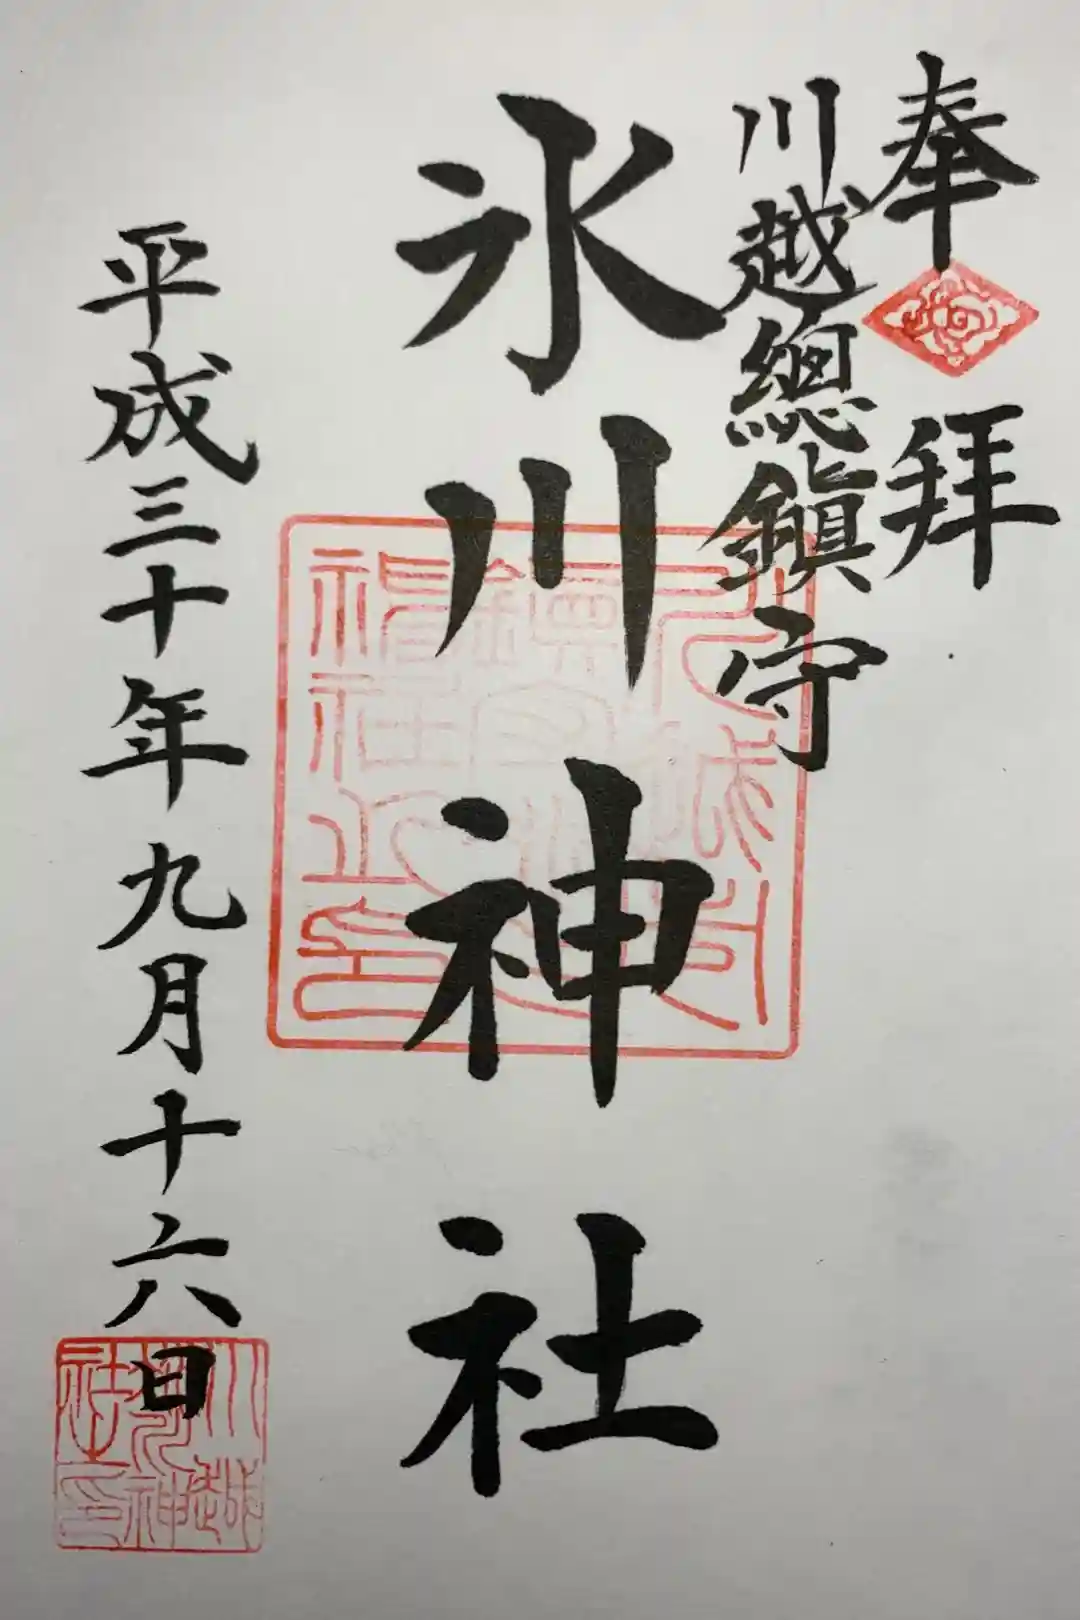 奉拜
川越總鎮守
氷川神社
平成三十年九月十六日